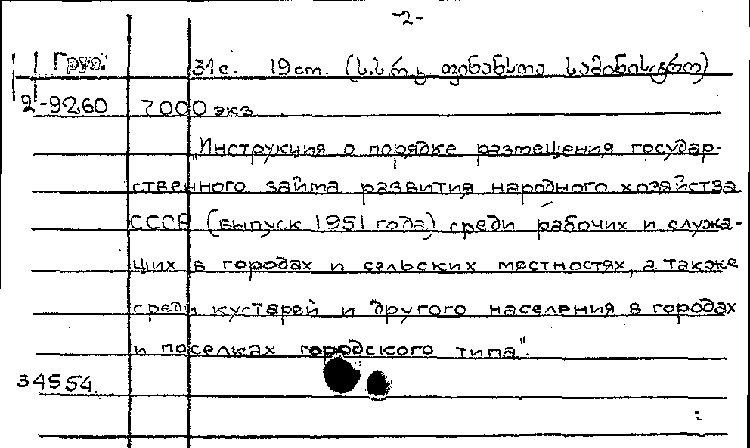 -2-
Груз. 31 с. 19 см. (სსრკ ფინანსთა სამინისტრო)
2-9260 7000 экз.
"Инструкция о порядке размещения государ-
ственного займа развития народного хозяйства
СССР (выпуск 1951 года) среди рабочих и служа-
щих в городах и сельских местностях, а также
среди кустарей и другого населения в городах
и поселках городского типа".
34554.